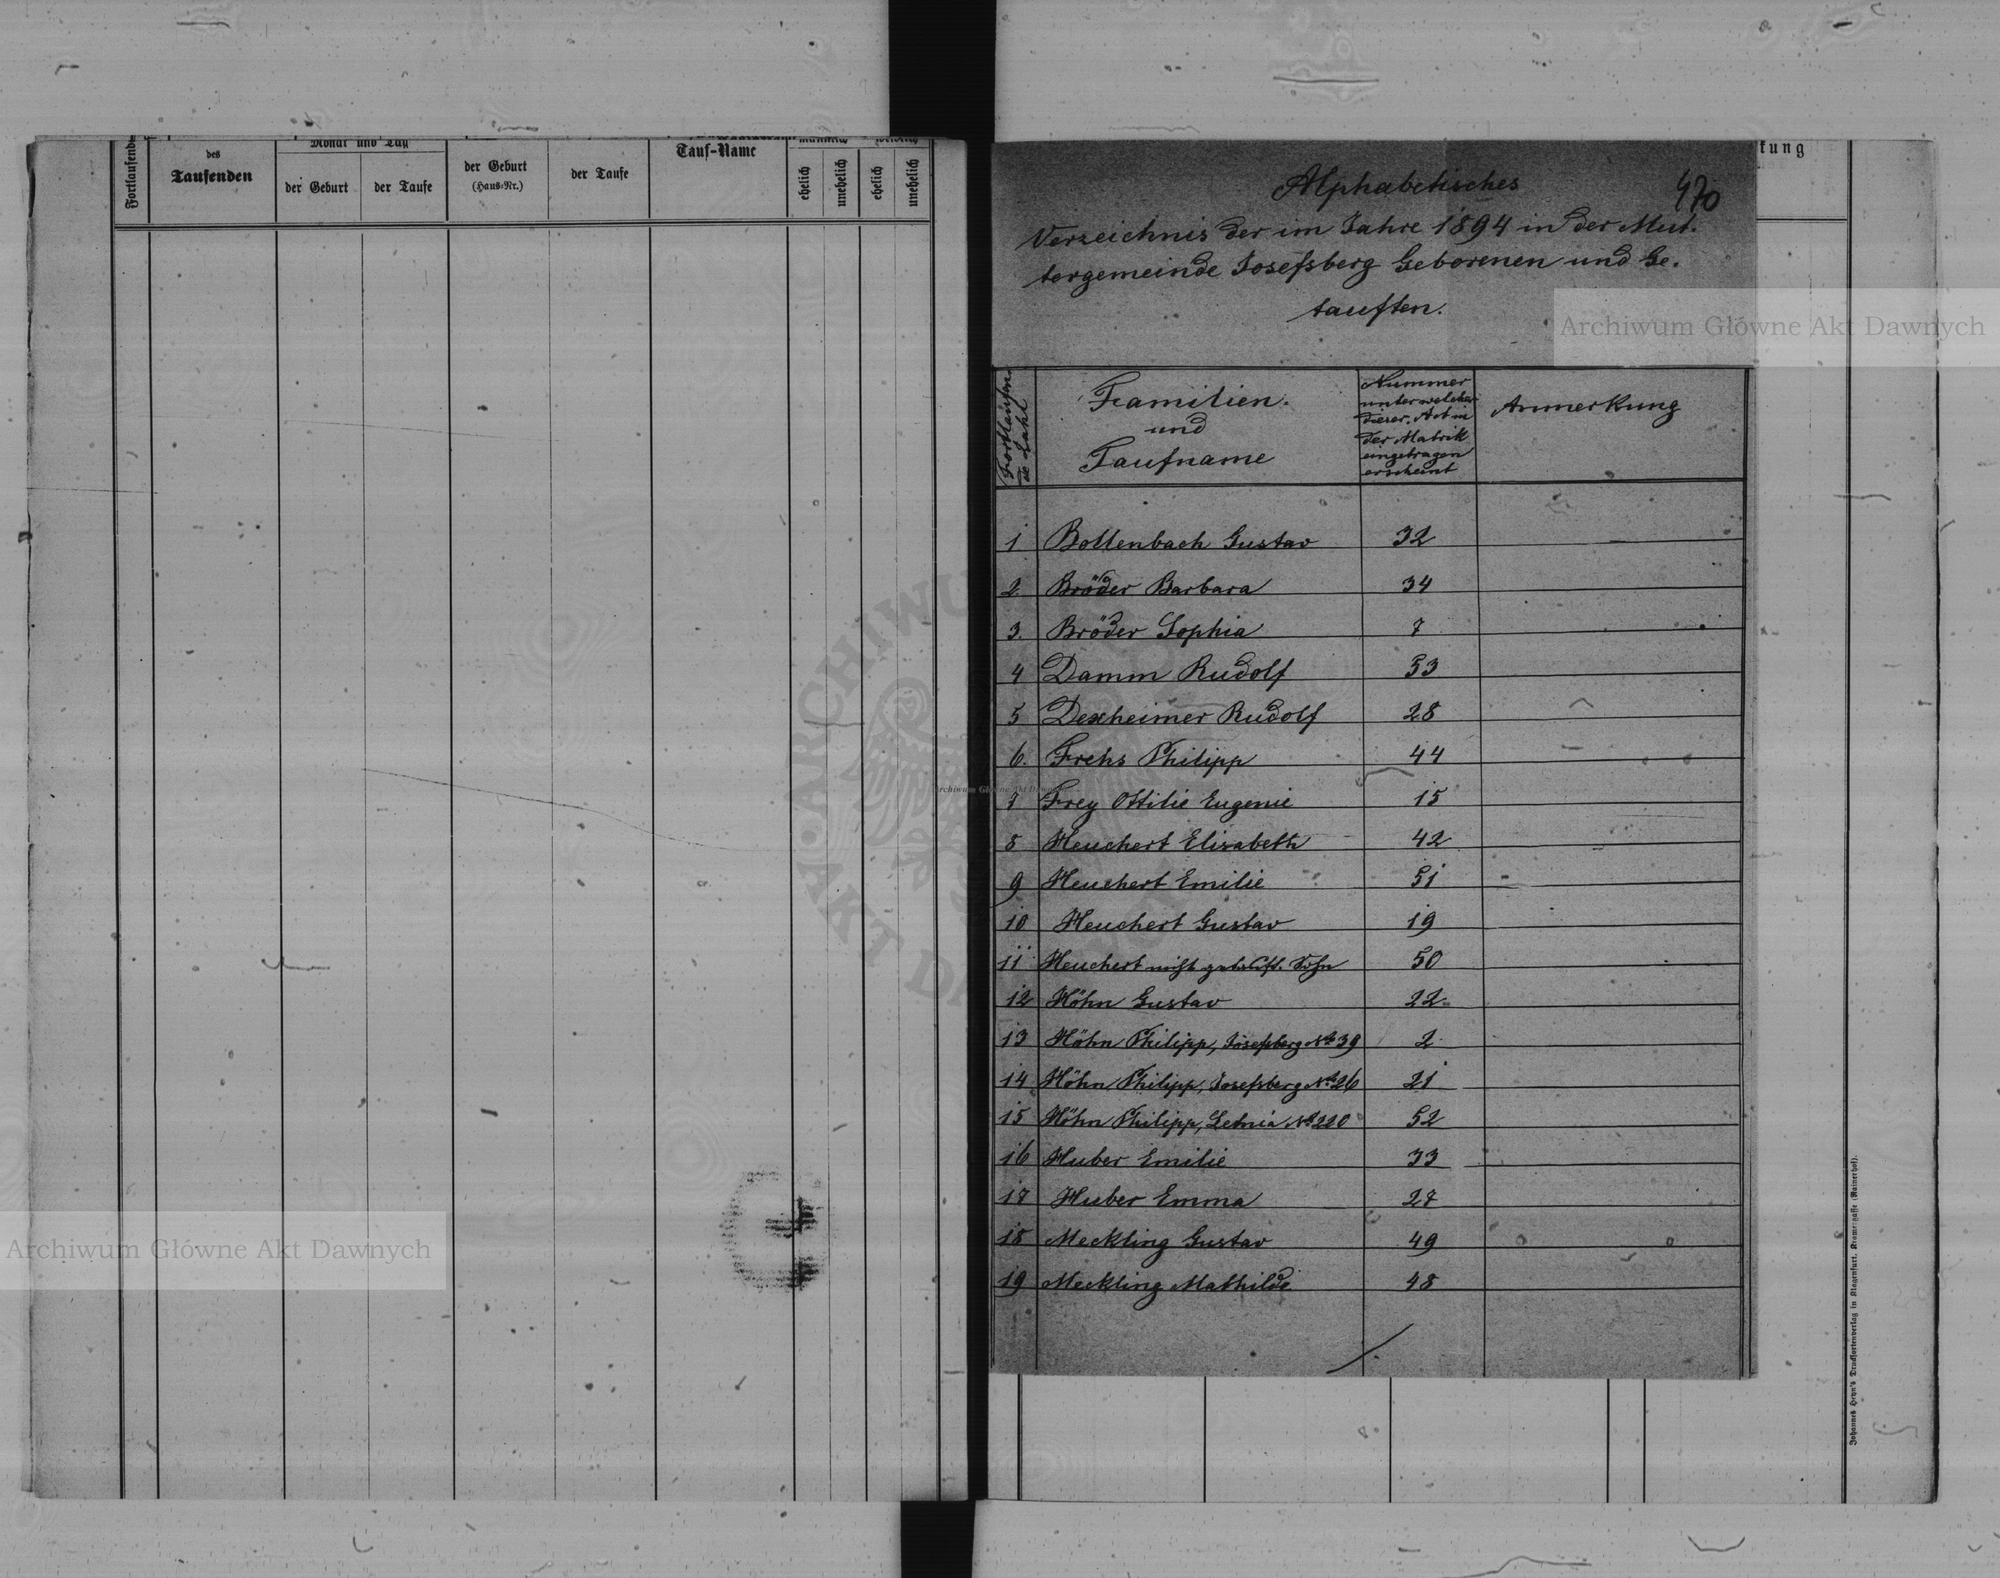 Fortlaufende
des
Taufenden
Monat und Tag
der Geburt
der Taufe
der Geburt
(Haus-Nr.)
der Taufe
Tauf-Name
männlich
ehelich
unehelich
ehelich
unehelich
kung
470
Alphabetisches
Verzeichnis der im Jahre 1894 in der Mut-
tergemeinde Josefsberg Geborenen und Ge-
tauften.
Archiwum Główne Akt Dawnych
Fortlaufen-
de Zahl
Familien-
und
Taufname
Nummer
unter welcher
dieser Act in
der Matrik
eingetragen
erscheint
Anmerkung
1 Bollenbach Gustav 32
2 Bröder Barbara 34
3. Bröder Sophia 7
4 Damm Rudolf 53
5 Dexheimer Rudolf 28
6. Frehs Philipp 44
7 Frey Ottilie Eugenie 15
8 Heuchert Elisabeth 42
9 Heuchert Emilie 51
10 Heuchert Gustav 19
11 Heuchert nicht getauft. Sohn 50
12 Höhn Gustav 22
13 Höhn Philipp, Josefsberg No 39 2
14 Höhn Philipp, Josefsberg No 26 21
15 Höhn Philipp, Letnia No 220 52
16 Huber Emilie 33
17 Huber Emma 27
18 Meckling Gustav 49
19 Meckling Mathilde 48
Archiwum Główne Akt Dawnych
Archiwum Główne Akt Dawnych
Johannes Heyn's Drucksortenverlag in Klagenfurt, Kramergasse (Mainerhof).